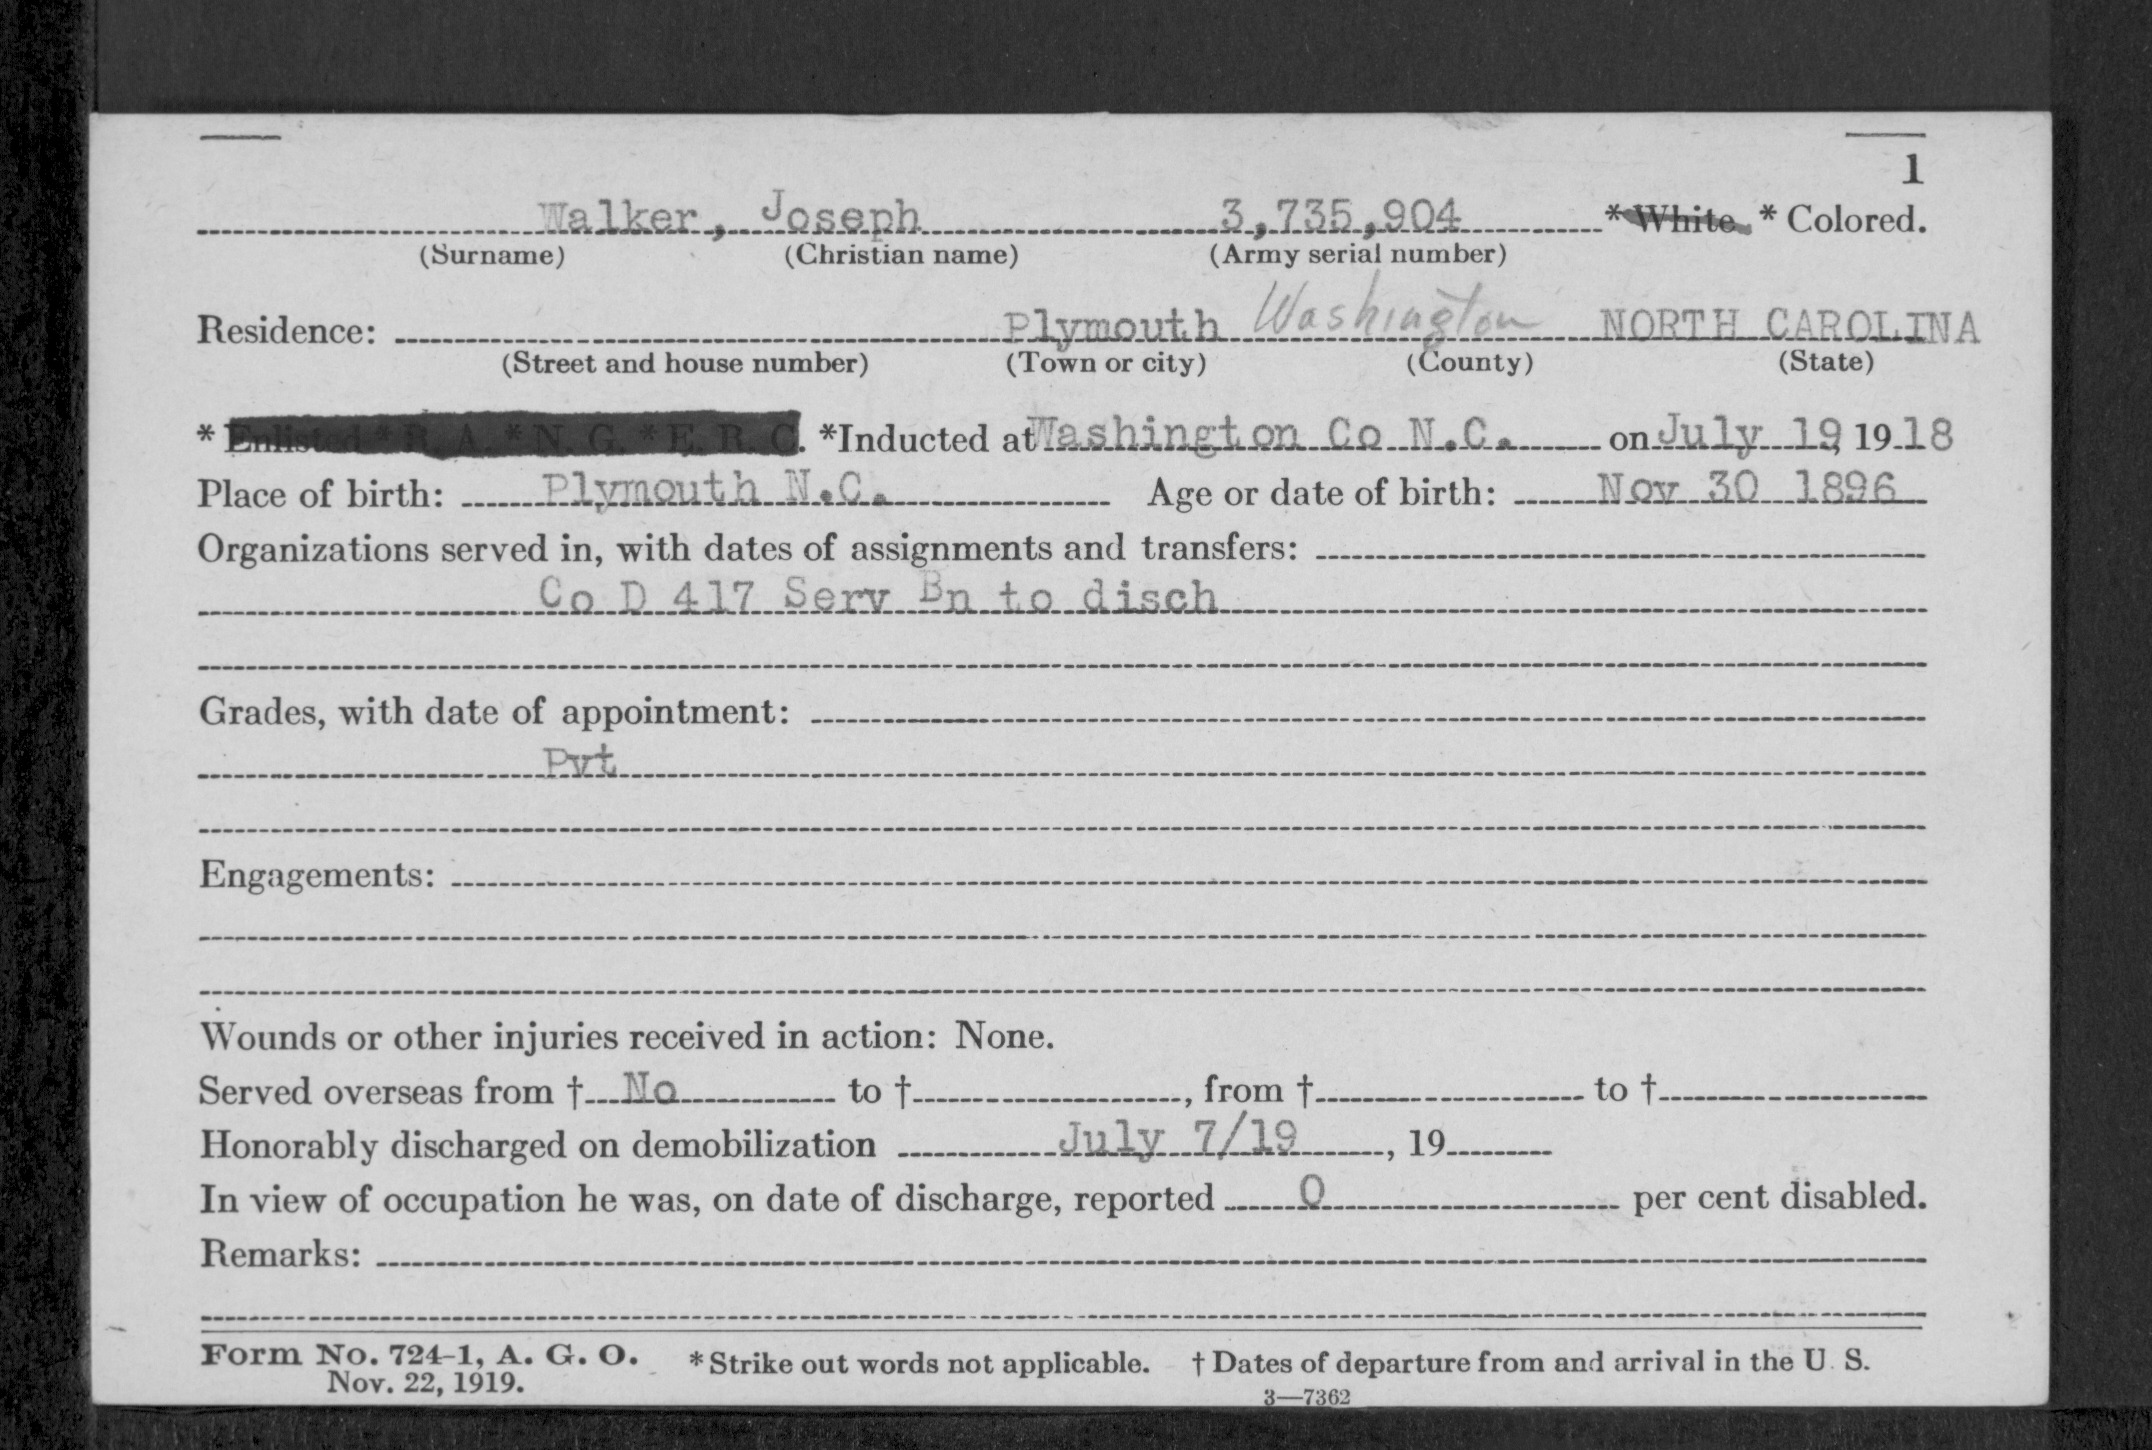 1
Walker, Joseph 3,735,904 * White * Colored.
(Surname) (Christian name) (Army serial number)
Residence: Plymouth Washington NORTH CAROLINA
(Street and house number) (Town or city) (County) (State)
* Enlisted * R. A. * N. G. * E. R. C. *Inducted at Washington Co N.C. on July 19, 1918
Place of birth: Plymouth N.C. Age or date of birth: Nov 30 1896
Organizations served in, with dates of assignments and transfers:
Co D 417 Serv Bn to disch
Grades, with date of appointment:
Pvt
Engagements:
Wounds or other injuries received in action: None.
Served overseas from † No to †, from † to †
Honorably discharged on demobilization July 7/19, 19
In view of occupation he was, on date of discharge, reported 0 per cent disabled.
Remarks:
Form No. 724-1, A. G. O. * Strike out words not applicable. † Dates of departure from and arrival in the U. S.
Nov. 22, 1919.
3—7362